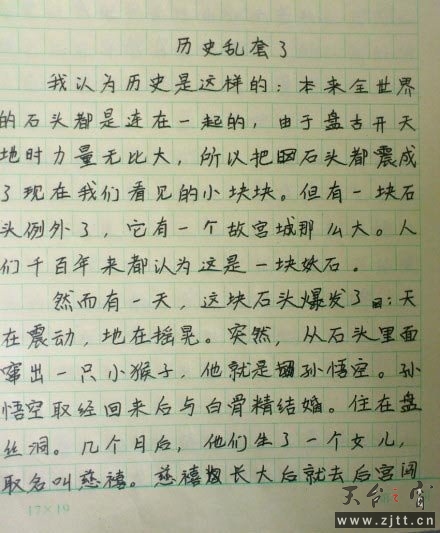 历史乱套了
我认为历史是这样的：本来全世界
的石头都是连在一起的，由于盘古开天
地时力量无比大，所以把石头都震成
了现在我们看见的小块块。但有一块石
头例外了，它有一个故宫城那么大。人
们千百年来都认为这是一块妖石。
然而有一天，这块石头爆发了：天
在震动，地在摇晃。突然，从石头里面
窜出一只小猴子，他就是孙悟空。孙
悟空取经回来后与白骨精结婚。住在盘
丝洞。几个月后，他们生了一个女儿，
取名叫慈禧。慈禧长大后就去后宫闯
17×19
天台之窗
www.zjtt.cn